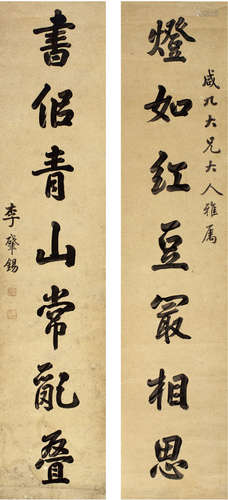 咸九大兄大人雅属
燈如紅豆冣相思
書佀青山常亂叠
李肇錫